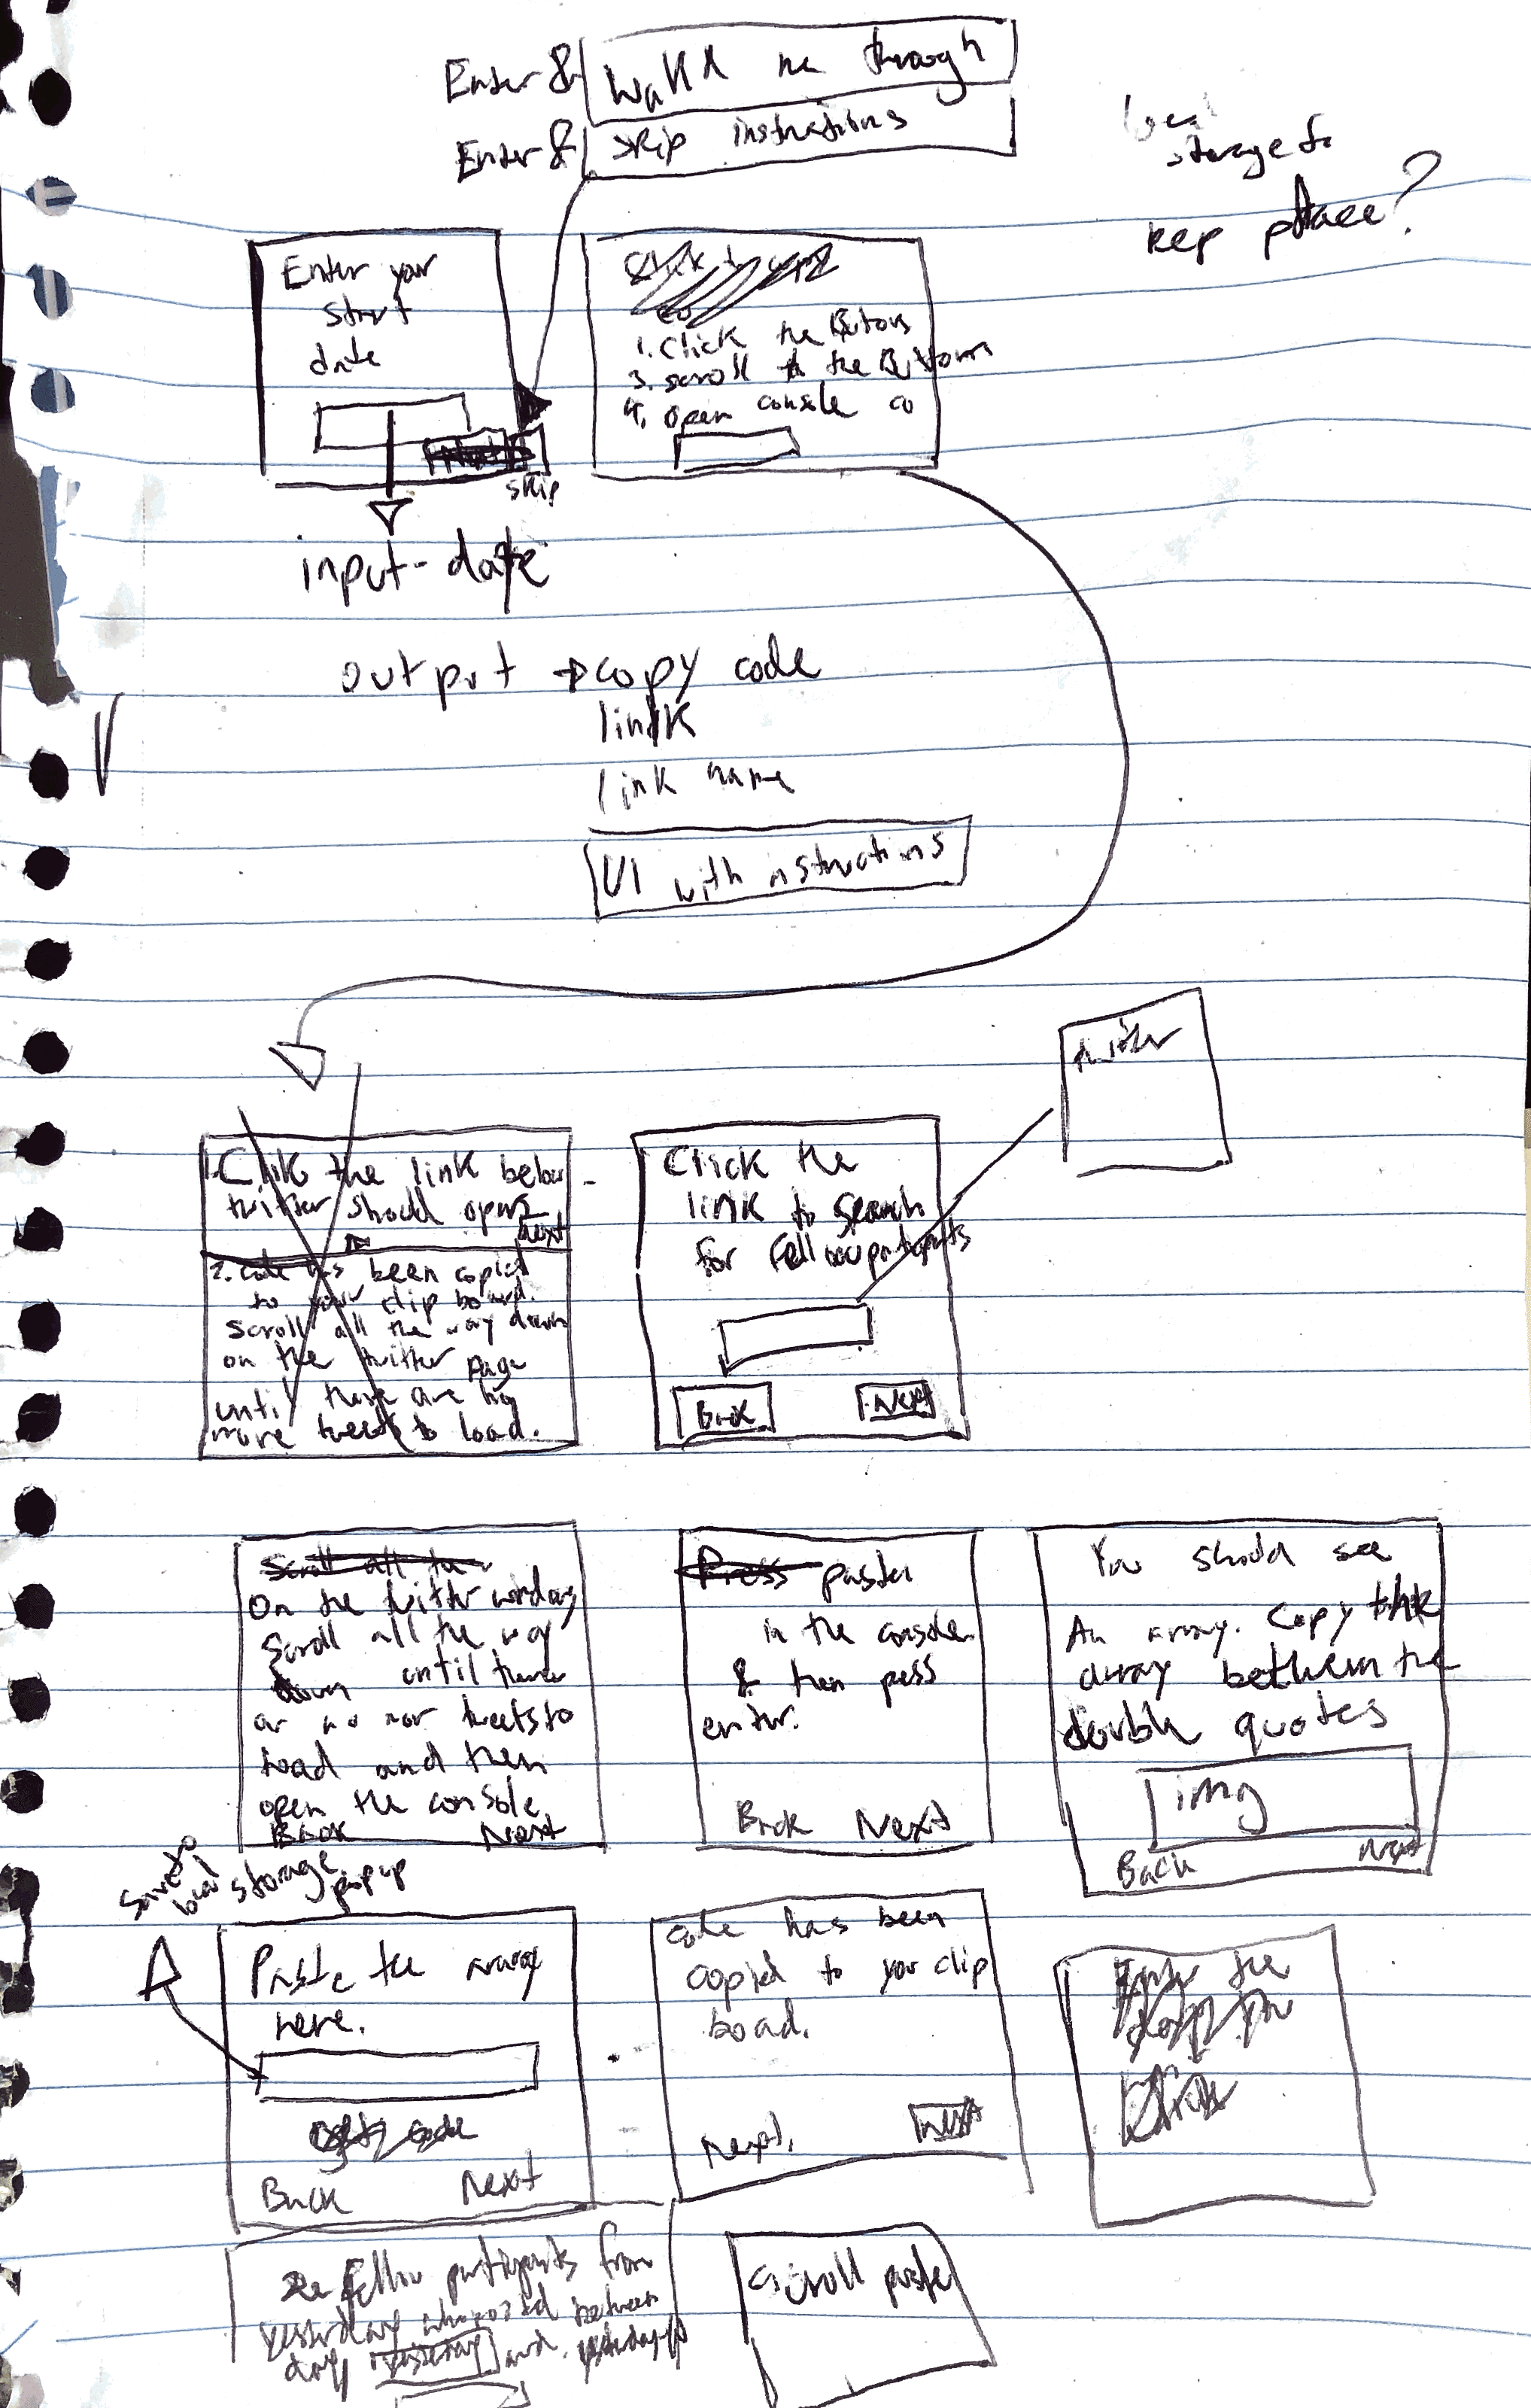 Enter & Walk me through
Enter & skip instructions
local
storage to
keep place?
Enter your
start
date
skip
1. Click the Button
3. scroll to the Bottom
4. open console
input-date
output → copy code
link
link name
UI with instructions
twitter
1. Click the link below
twitter should open
next
2. code has been copied
to your clip board.
Scroll all the way down
on the twitter page
until there are no
more tweets to load.
Click the
link to search
for fellow participants
Back Next
Scroll all the
On the twitter window
scroll all the way
down until there
are no mor tweets to
load and then
open the console
Back Next
Press paste
in the console
& then press
enter.
Back Next
You should see
An array. Copy the
array between the
double quotes
img
Back Next
save to
local storage
popup
Paste the array
here.
code
Back Next
code has been
copied to your clip
board.
Next. Next
the
fellow participants from
yesterday who posted between
day yesterday and yesterday
scroll paste